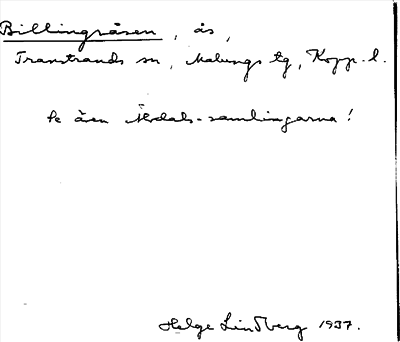 Billingråsen, ås,
Transtrands sn, Malungs tg, Kopp. l.
Se även Älvdals-samlingarna!
Helge Lindberg 1937.